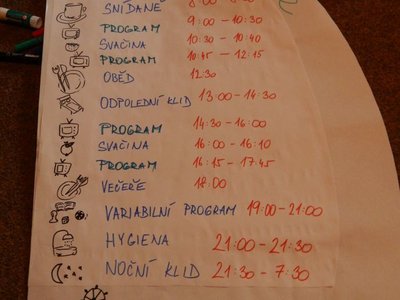 SNÍDANĚ
PROGRAM 9:00 - 10:30
SVAČINA 10:30 - 10:40
PROGRAM 10:45 - 12:15
OBĚD 12:30
ODPOLEDNÍ KLID 13:00 - 14:30
PROGRAM 14:30 - 16:00
SVAČINA 16:00 - 16:10
PROGRAM 16:15 - 17:45
VEČEŘE 18:00
VARIABILNÍ PROGRAM 19:00 - 21:00
HYGIENA 21:00 - 21:30
NOČNÍ KLID 21:30 - 7:30